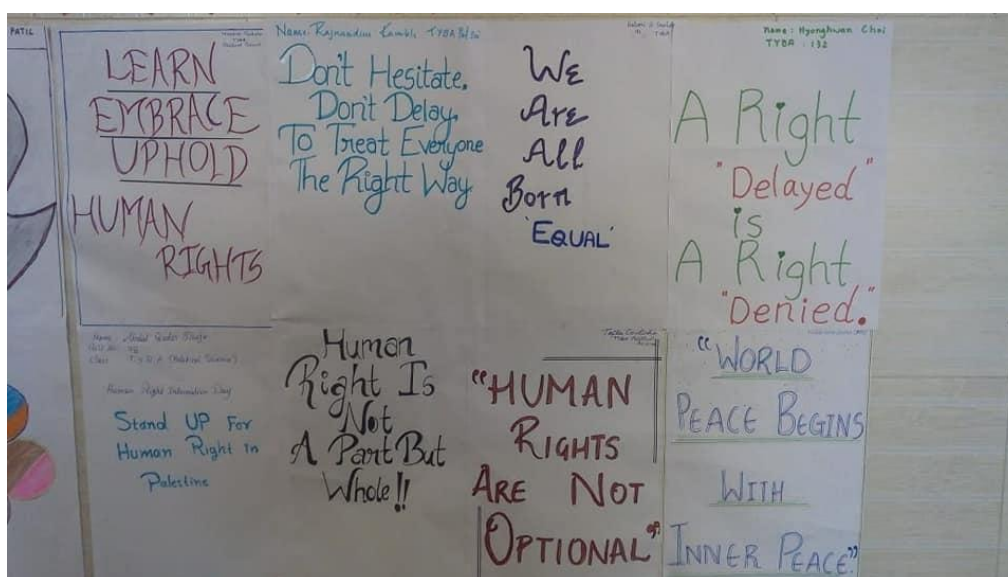 PATIL
LEARN
EMBRACE
UPHOLD
HUMAN
RIGHTS
Name: Rajnandini Kamble TYBA
Don't Hesitate.
Don't Delay.
To Treat Everyone
The Right Way
We
Are
All
Born
'EQUAL'
Name: Hyonghwan Choi
TYBA : 132
A Right
"Delayed"
is
A Right
"Denied."
Name: Abdul Quader
Class T.Y.B.A (Political Science)
Human Right Day
Stand UP For
Human Right in
Palestine
Human
Right Is
Not
A Part But
Whole!!
"HUMAN
RIGHTS
ARE NOT
OPTIONAL"
"WORLD
PEACE BEGINS
WITH
INNER PEACE"